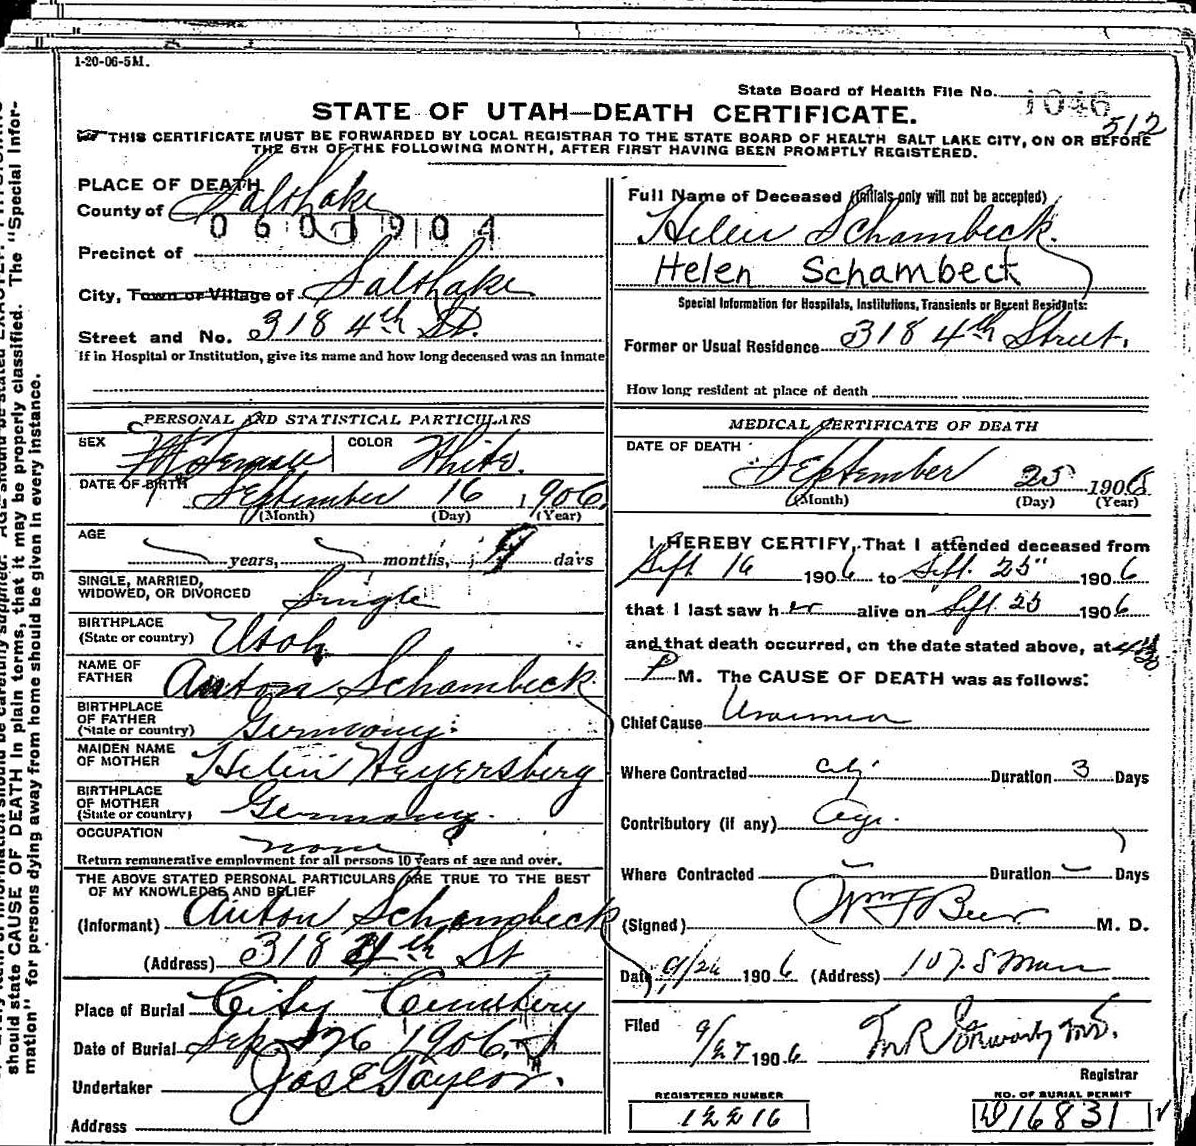 1-20-06-5M.
State Board of Health File No. 1046
512
STATE OF UTAH—DEATH CERTIFICATE.
THIS CERTIFICATE MUST BE FORWARDED BY LOCAL REGISTRAR TO THE STATE BOARD OF HEALTH SALT LAKE CITY, ON OR BEFORE
THE 5TH OF THE FOLLOWING MONTH, AFTER FIRST HAVING BEEN PROMPTLY REGISTERED.
should state CAUSE OF DEATH in plain terms, that it may be properly classified. The "Special Infor-
mation" for persons dying away from home should be given in every instance.
PLACE OF DEATH
County of Salt Lake
0601904
Precinct of
City, Town or Village of Salt Lake
Street and No. 318 4th St.
If in Hospital or Institution, give its name and how long deceased was an inmate
PERSONAL AND STATISTICAL PARTICULARS
SEX Female COLOR White.
DATE OF BIRTH September 16 1906.
(Month) (Day) (Year)
AGE years, months, 9 days
SINGLE, MARRIED,
WIDOWED, OR DIVORCED Single
BIRTHPLACE
(State or country) Utah
NAME OF
FATHER Anton Schambeck
BIRTHPLACE
OF FATHER
(State or country) Germany.
MAIDEN NAME
OF MOTHER Helen Heyersberg
BIRTHPLACE
OF MOTHER
(State or country) Germany.
OCCUPATION none
Return remunerative employment for all persons 10 years of age and over.
THE ABOVE STATED PERSONAL PARTICULARS ARE TRUE TO THE BEST
OF MY KNOWLEDGE AND BELIEF
(Informant) Anton Schambeck
(Address) 318 4th St
Place of Burial City Cemetery
Date of Burial Sep 26 1906.
Undertaker Jos E Taylor.
Address
Full Name of Deceased (Initials only will not be accepted)
Helen Schambeck.
Helen Schambeck
Special Information for Hospitals, Institutions, Transients or Recent Residents:
Former or Usual Residence 318 4th Street.
How long resident at place of death
MEDICAL CERTIFICATE OF DEATH
DATE OF DEATH
September 25 1906
(Month) (Day) (Year)
I HEREBY CERTIFY, That I attended deceased from
Sept 16 1906 to Sept. 25" 1906
that I last saw her alive on Sept. 25 1906
and that death occurred, on the date stated above, at 4:30
P M. The CAUSE OF DEATH was as follows:
Chief Cause
Where Contracted City Duration 3 Days
Contributory (if any) Age.
Where Contracted — Duration — Days
(Signed) Wm F Beer M. D.
Date 9/26 1906 (Address) 107. S Main
Filed 9/27 1906
Registrar
REGISTERED NUMBER
12216
NO. OF BURIAL PERMIT
D16831